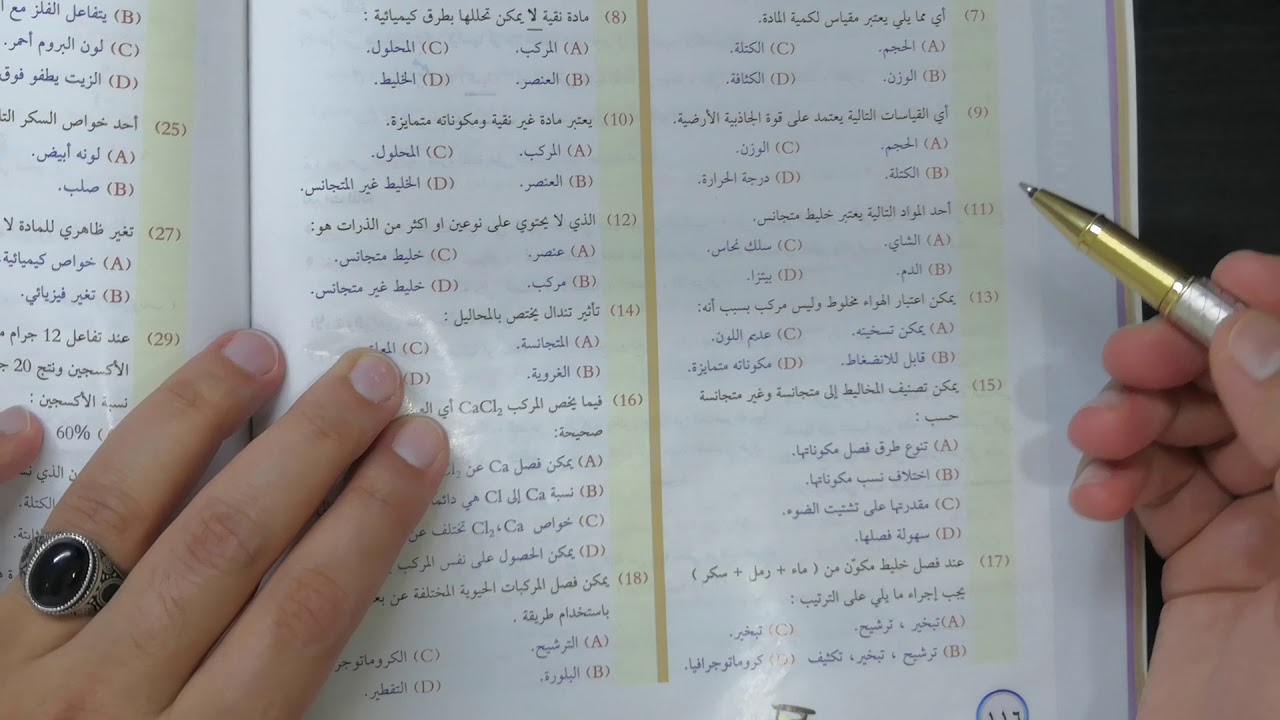 (7) أي مما يلي يعتبر مقياس لكمية المادة.
(A) الحجم. (C) الكتلة.
(B) الوزن. (D) الكثافة.
(9) أي القياسات التالية يعتمد على قوة الجاذبية الأرضية.
(A) الحجم. (C) الوزن.
(B) الكتلة. (D) درجة الحرارة.
(11) أحد المواد التالية يعتبر خليط متجانس.
(A) الشاي. (C) سلك نحاس.
(B) الدم. (D) بيتزا.
(13) يمكن اعتبار الهواء مخلوط وليس مركب بسبب أنه:
(A) يمكن تسخينه. (C) عديم اللون.
(B) قابل للانضغاط. (D) مكوناته متمايزة.
(15) يمكن تصنيف المخاليط إلى متجانسة وغير متجانسة
حسب :
(A) تنوع طرق فصل مكوناتها.
(B) اختلاف نسب مكوناتها.
(C) مقدرتها على تشتيت الضوء.
(D) سهولة فصلها.
(17) عند فصل خليط مكوّن من ( ماء + رمل + سكر )
يجب إجراء ما يلي على الترتيب :
(A) تبخير ، ترشيح. (C) تبخير.
(B) ترشيح ، تبخير، تكثيف (D) كروماتوجرافيا.
١١٦
(8) مادة نقية لا يمكن تحللها بطرق كيميائية :
(A) المركب. (C) المحلول.
(B) العنصر. (D) الخليط.
(10) يعتبر مادة غير نقية ومكوناته متمايزة.
(A) المركب. (C) المحلول.
(B) العنصر. (D) الخليط غير المتجانس.
(12) الذي لا يحتوي على نوعين او اكثر من الذرات هو:
(A) عنصر. (C) خليط متجانس.
(B) مركب. (D) خليط غير متجانس.
(14) تأثير تندال يختص بالمحاليل :
(A) المتجانسة. (C)
(B) الغروية. (D)
(16) فيما يخص المركب CaCl₂ أي
صحيحة:
(A) يمكن فصل Ca عن
(B) نسبة Ca إلى Cl هي
(C) خواص Cl₂،Ca تختلف
(D) يمكن الحصول على نفس المركب
(18) يمكن فصل المركبات الحيوية المختلفة عن
باستخدام طريقة .
(A) الترشيح. (C)
(B) البلورة. (D) التقطير.
(B) يتفاعل الفلز مع
(C) لون البروم أحمر.
(D) الزيت يطفو فوق
(25) أحد خواص السكر
(A) لونه أبيض.
(B) صلب.
(27) تغير ظاهري للمادة لا
(A) خواص كيميائية.
(B) تغير فيزيائي.
(29) عند تفاعل 12 جرام
الأكسجين ونتج 20
نسبة الأكسجين :
60%
الكتلة.